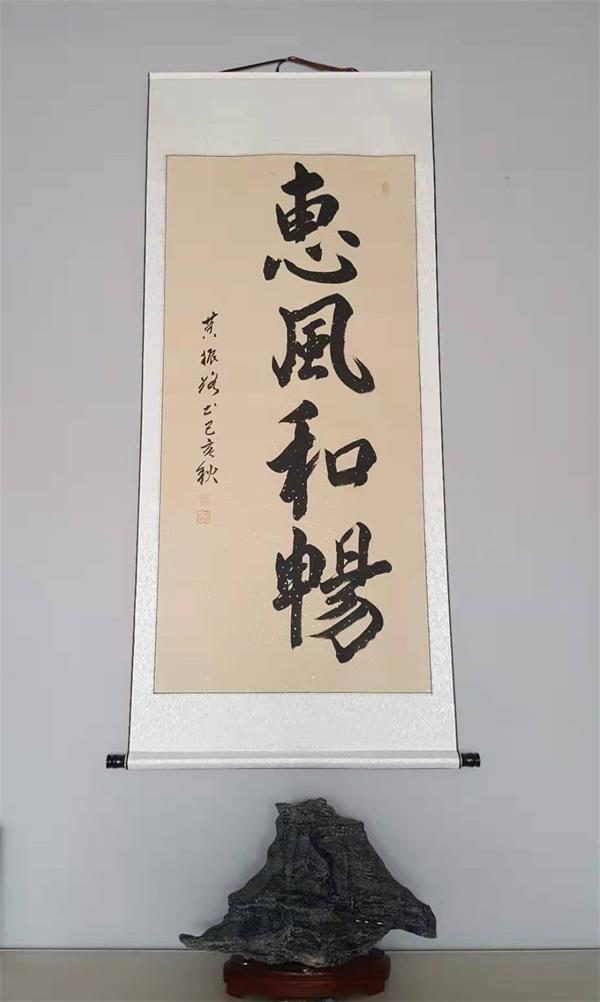 惠風和暢
黄振路书己亥秋